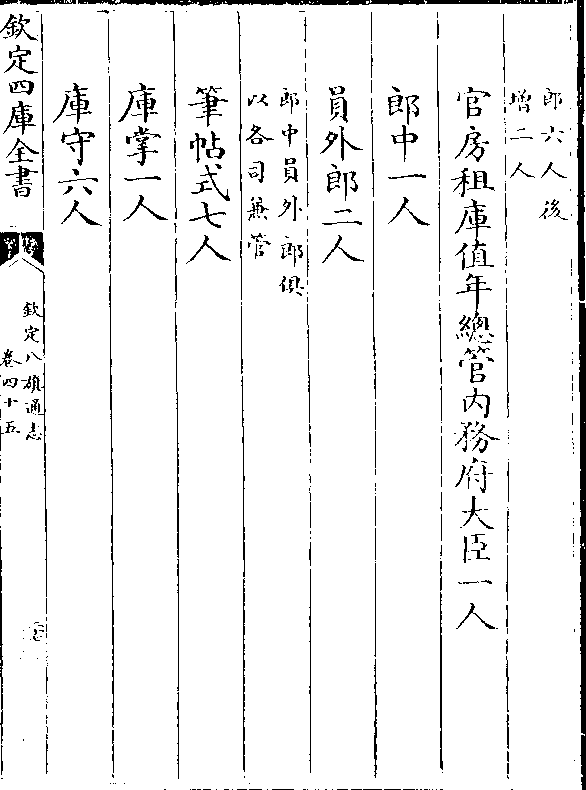 郎六人後
增二人
官房租庫值年總管内務府大臣一人
郎中一人
員外郎二人
郎中員外郎俱
以各司兼管
筆帖式七人
庫掌一人
庫守六人
欽定四庫全書
欽定八旗通志
卷四十五